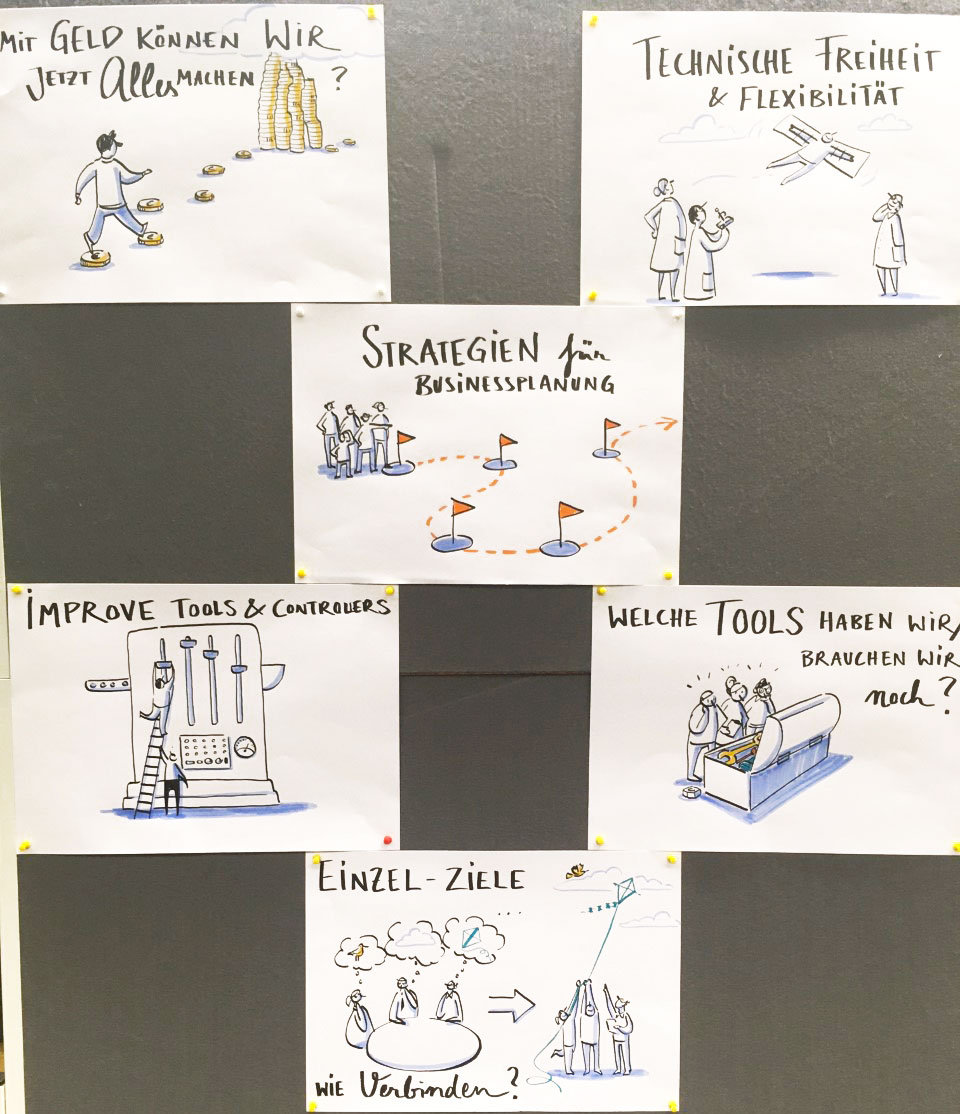 Mit GELD KÖNNEN WiR
JETZT Alles MACHEN ?
TECHNiSCHE FREiHEiT
& FLEXiBiLiTÄT
STRATEGiEN für
BUSiNESSPLANUNG
iMPROVE TOOLS & CONTROLLERS
WELCHE TOOLS HABEN WiR/
BRAUCHEN WiR
noch?
EiNZEL-ZiELE
...
WiE Verbinden?